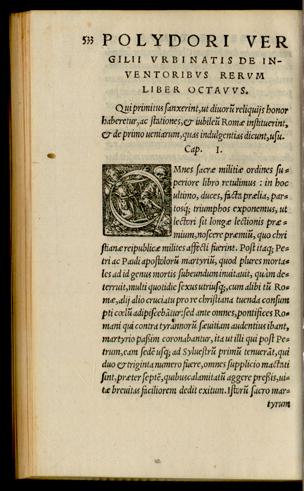 533 POLYDORI VER
GILII VRBINATIS DE IN-
VENTORIBVS RERVM
LIBER OCTAVVS.
Qui primitus sanxerint, ut diuorũ reliquijs honor
haberetur, ac stationes, & iubileũ Romæ instituerint,
& de primo ueniarum, quas indulgentias dicunt, usu.
Cap. I.
OMnes sacræ militiæ ordines su-
periore libro retulimus: in hoc
ultimo, duces, facta prælia, par-
tosq; triumphos exponemus, ut
lectori sit longæ lectionis præ-
mium, noscere præmiũ, quo chri
stianæ reipublicæ milites affecti fuerint. Post itaq; Pe-
tri ac Pauli apostolorũ martyriũ, quod plures morta-
les ad id genus mortis subeundum inuitauit, quàm de-
terruit, multi quotidie sexus utriusq;, cum alibi tũ Ro-
mæ, alij alio cruciatu pro re christiana tuenda consum
pti cœlũ adipiscebãtur: sed ante omnes, pontifices Ro-
mani qui contra tyrannorũ sæuitiam audentius ibant,
martyrio passim coronabantur, ita ut illi qui post Pe-
trum, eam sedẽ usq; ad Syluestrũ primũ tenuerãt, qui
duo & triginta numero fuere, omnes supplicio mactati
sint, præter septẽ, quibus calamitatũ aggere pressis, ui-
tæ breuitas faciliorem dedit exitum. Istorũ sacro mar-
tyrum